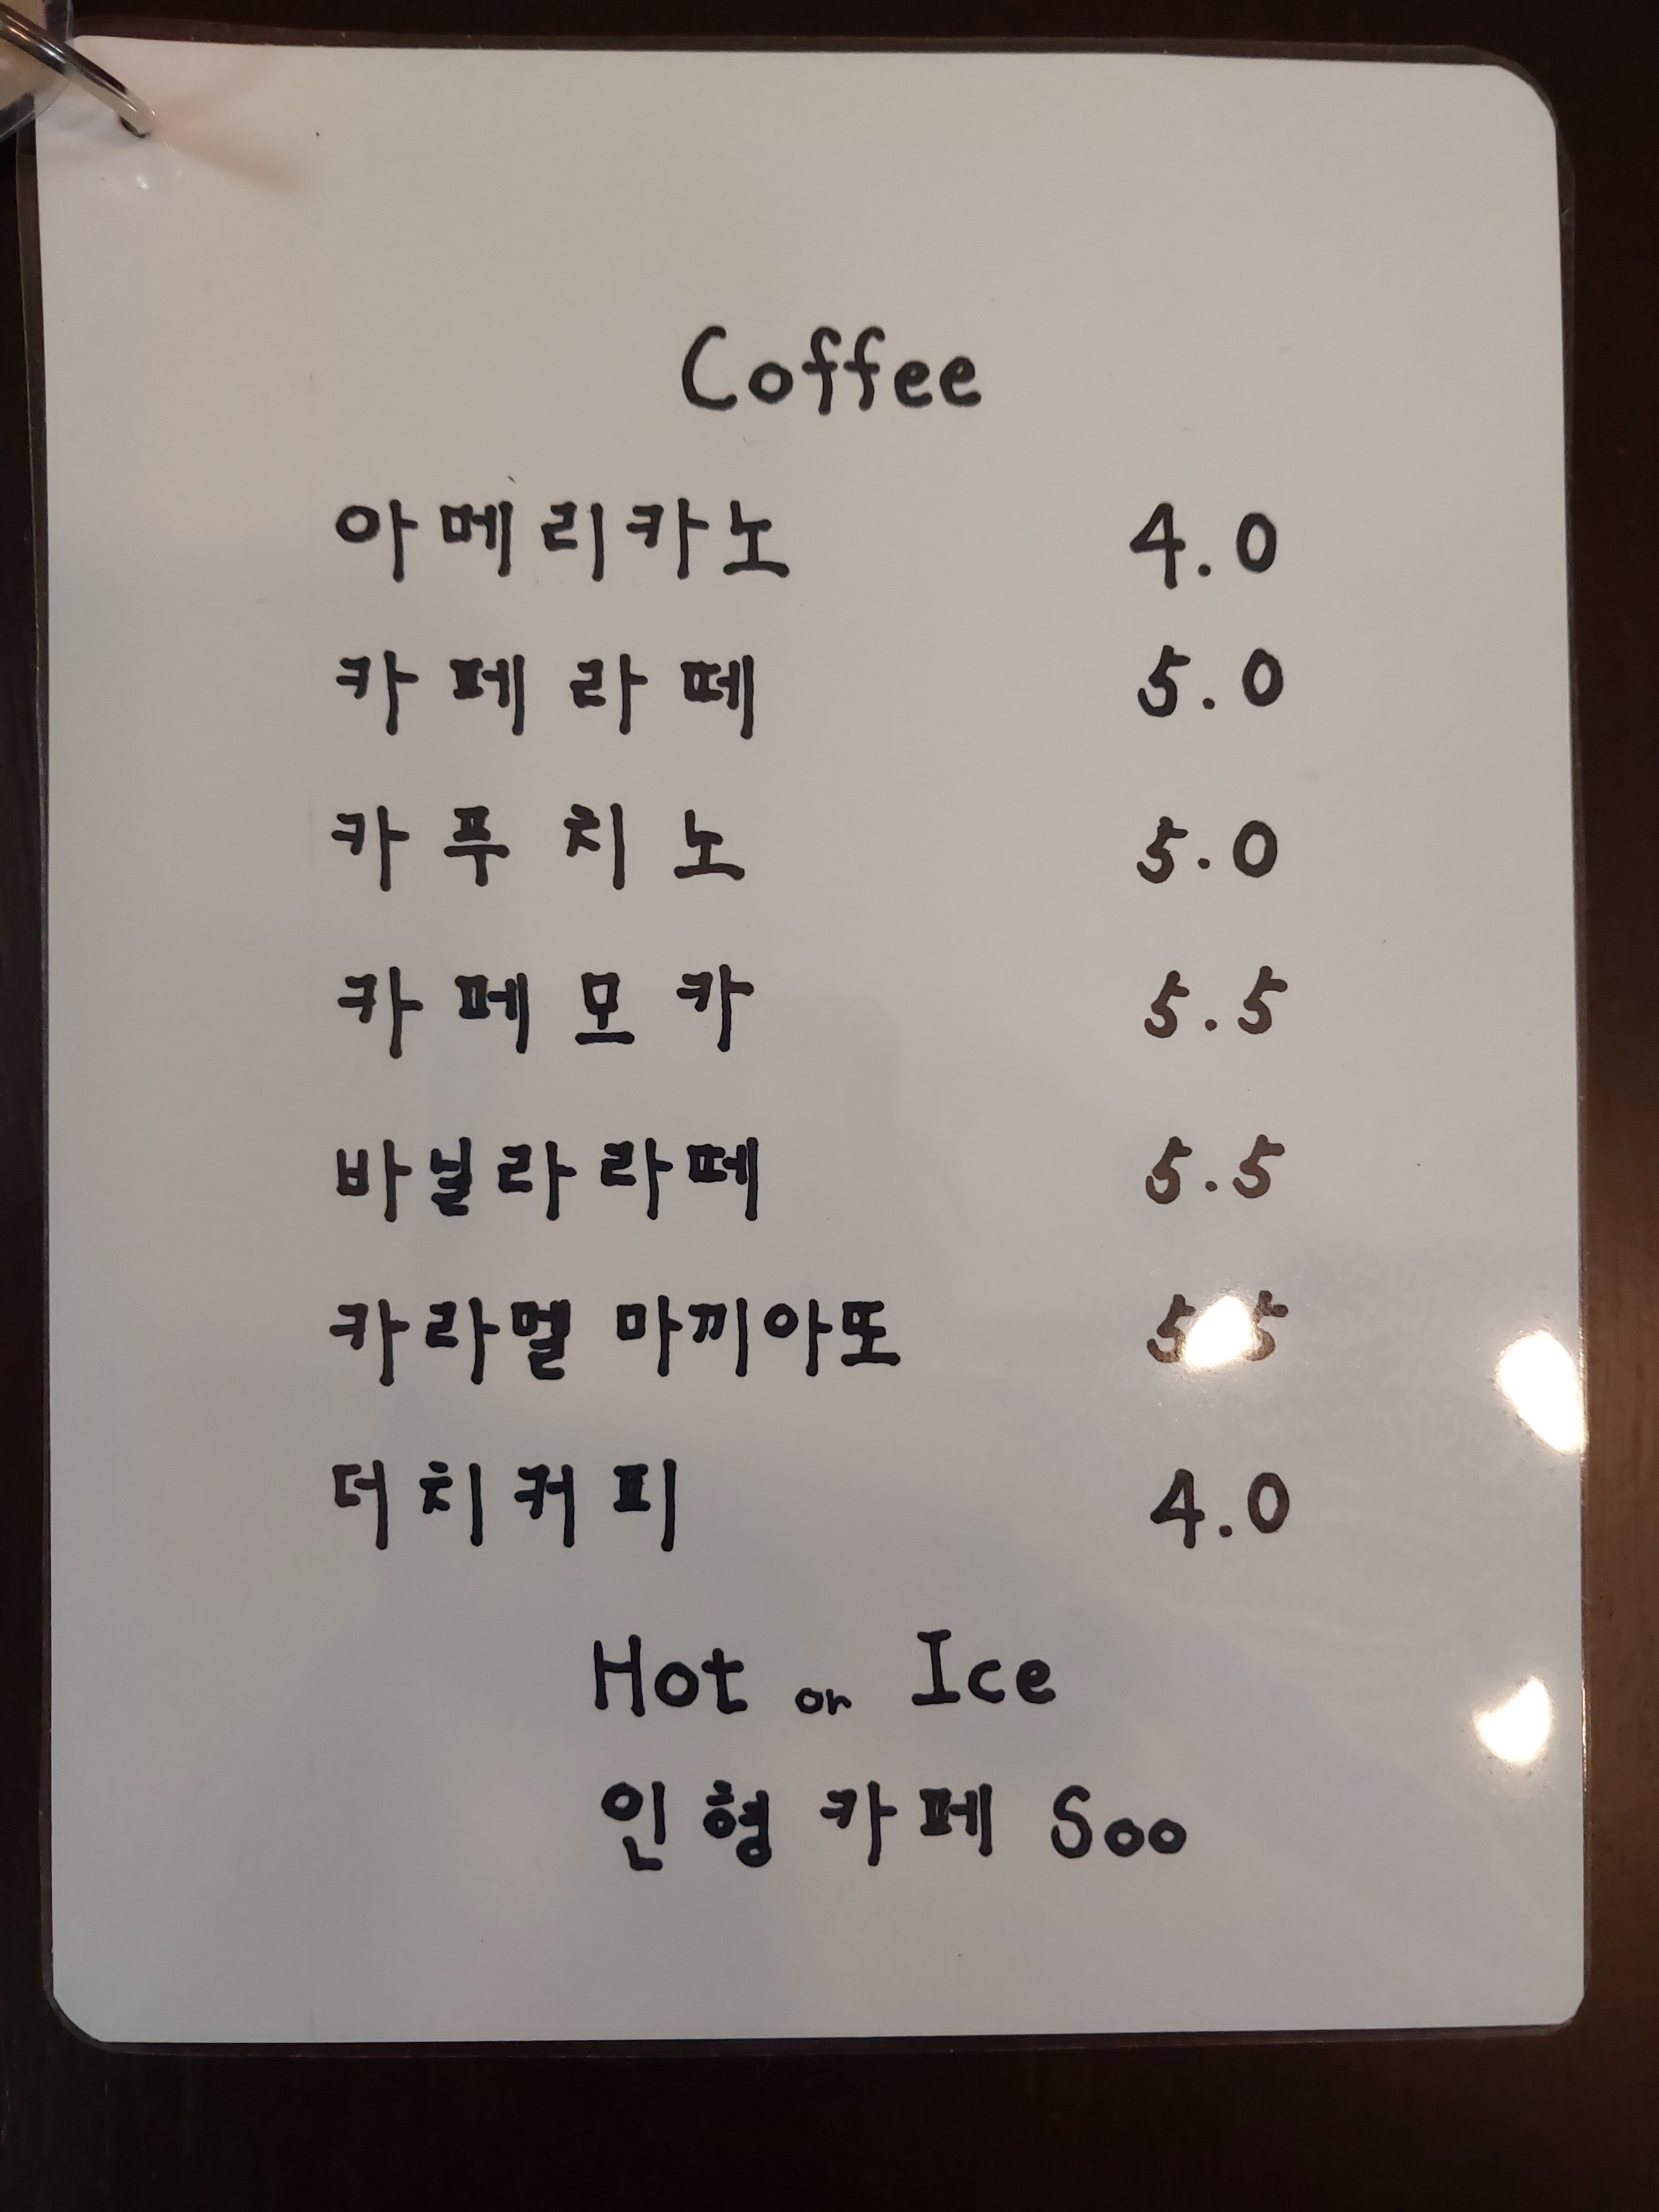 Coffee
아메리카노 4.0
카페라떼 5.0
카푸치노 5.0
카페모카 5.5
바닐라라떼 5.5
카라멜 마끼아또 5.5
더치커피 4.0
Hot or Ice
인형 카페 Soo